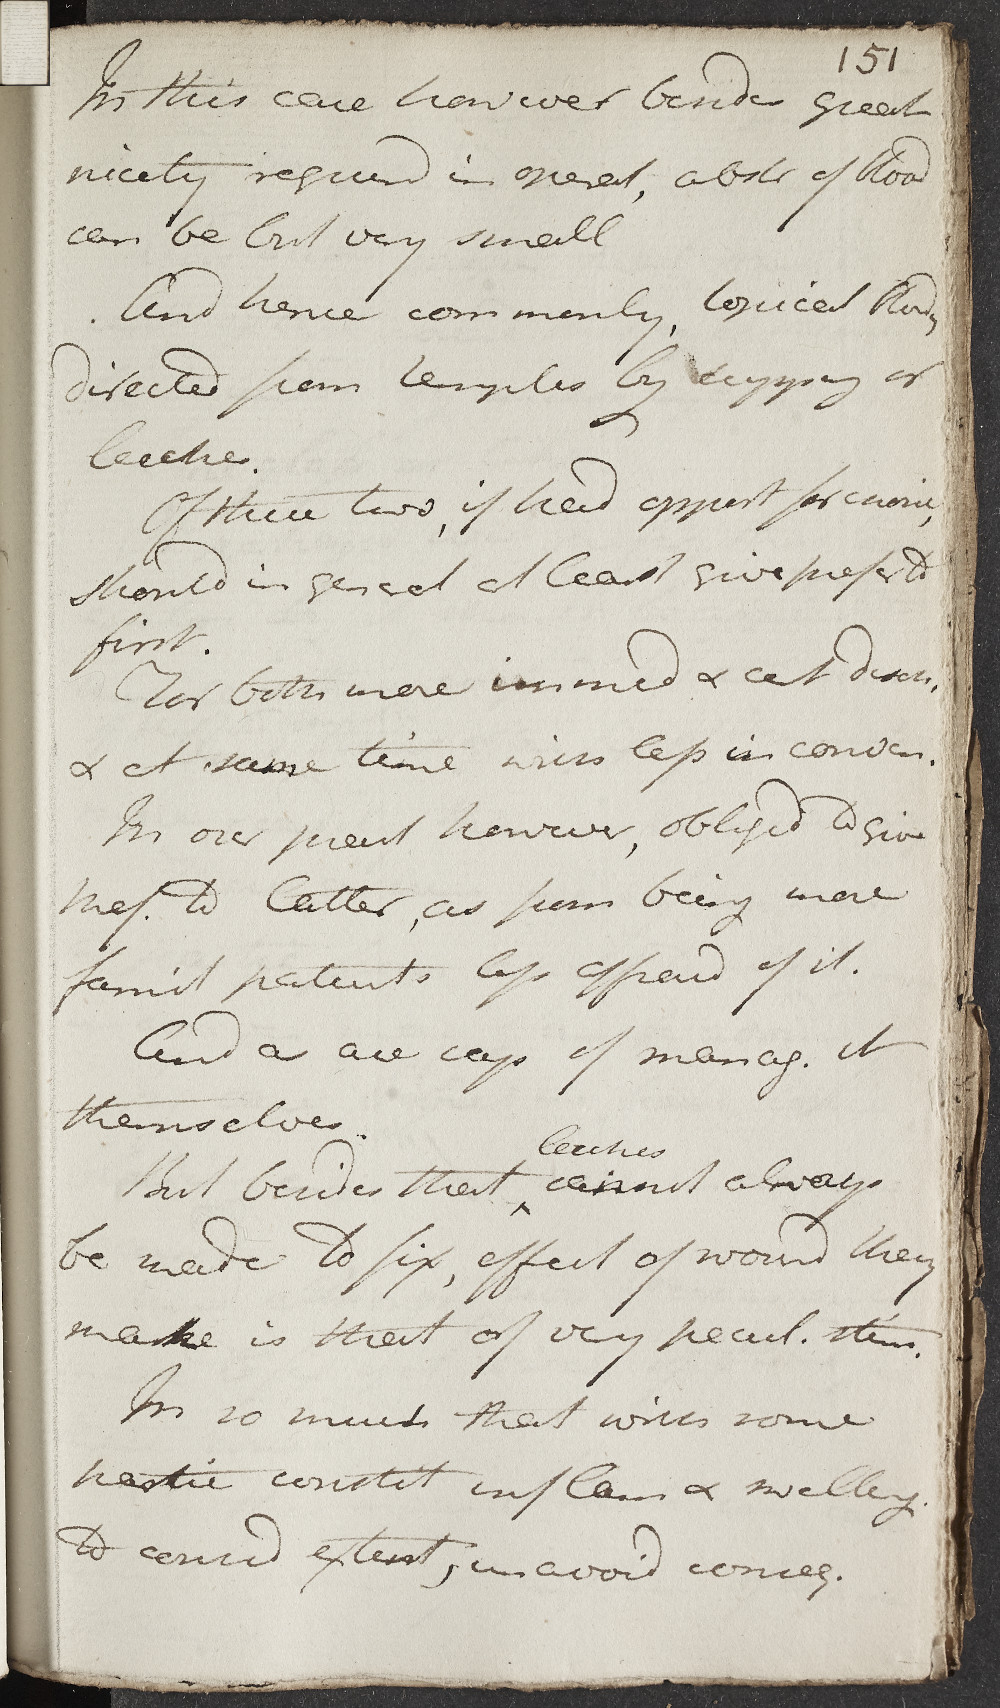 151
In this case however besides great
nicety requird in operat, abstr of blood
can be but very small
And hence commonly, topical Bloodg
directed from temples by cupping or
leeches.
Of these two, if had opport for choice,
should in general at least give prefer to
first.
For both more immed & cert disch,
& at same time with less inconven.
In our pract however, obliged to give
pref. to latter, as from being more
famil patients less affraid of it.
And as are cap of manag. it
themselves.
leeches
But besides that, cannot always
be made to fix, effect of wound they
make is that of very pecul. stim.
In so much that with some
constit inflam & swelling.
to consid extent, unavoid conseq.